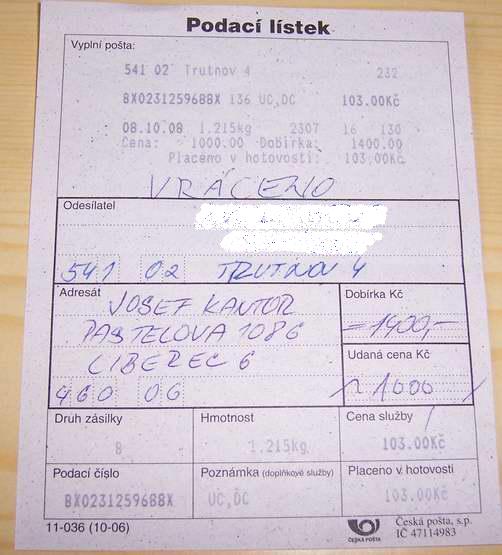 Podací lístek
Vyplní pošta:
541 02 Trutnov 4 232
BX0231259688X 136 UC,DC 103.00Kč
08.10.08 1.215kg 2307 16 130
Cena: 1000.00 Dobírka: 1400.00
Placeno v hotovosti: 103.00Kč
VRÁCENO
Odesílatel
541 02 TRUTNOV 4
Adresát
JOSEF KANTOR
PASTELOVA 1086
LIBEREC 6
460 06
Dobírka Kč
=1400,-
Udaná cena Kč
1000
Druh zásilky Hmotnost Cena služby
B 1.215kg 103.00Kč
Podací číslo Poznámka (doplňkové služby) Placeno v hotovosti
BX0231259688X UC,DC 103.00Kč
11-036 (10-06)
ČESKÁ POŠTA
Česká pošta, s.p.
IČ 47114983